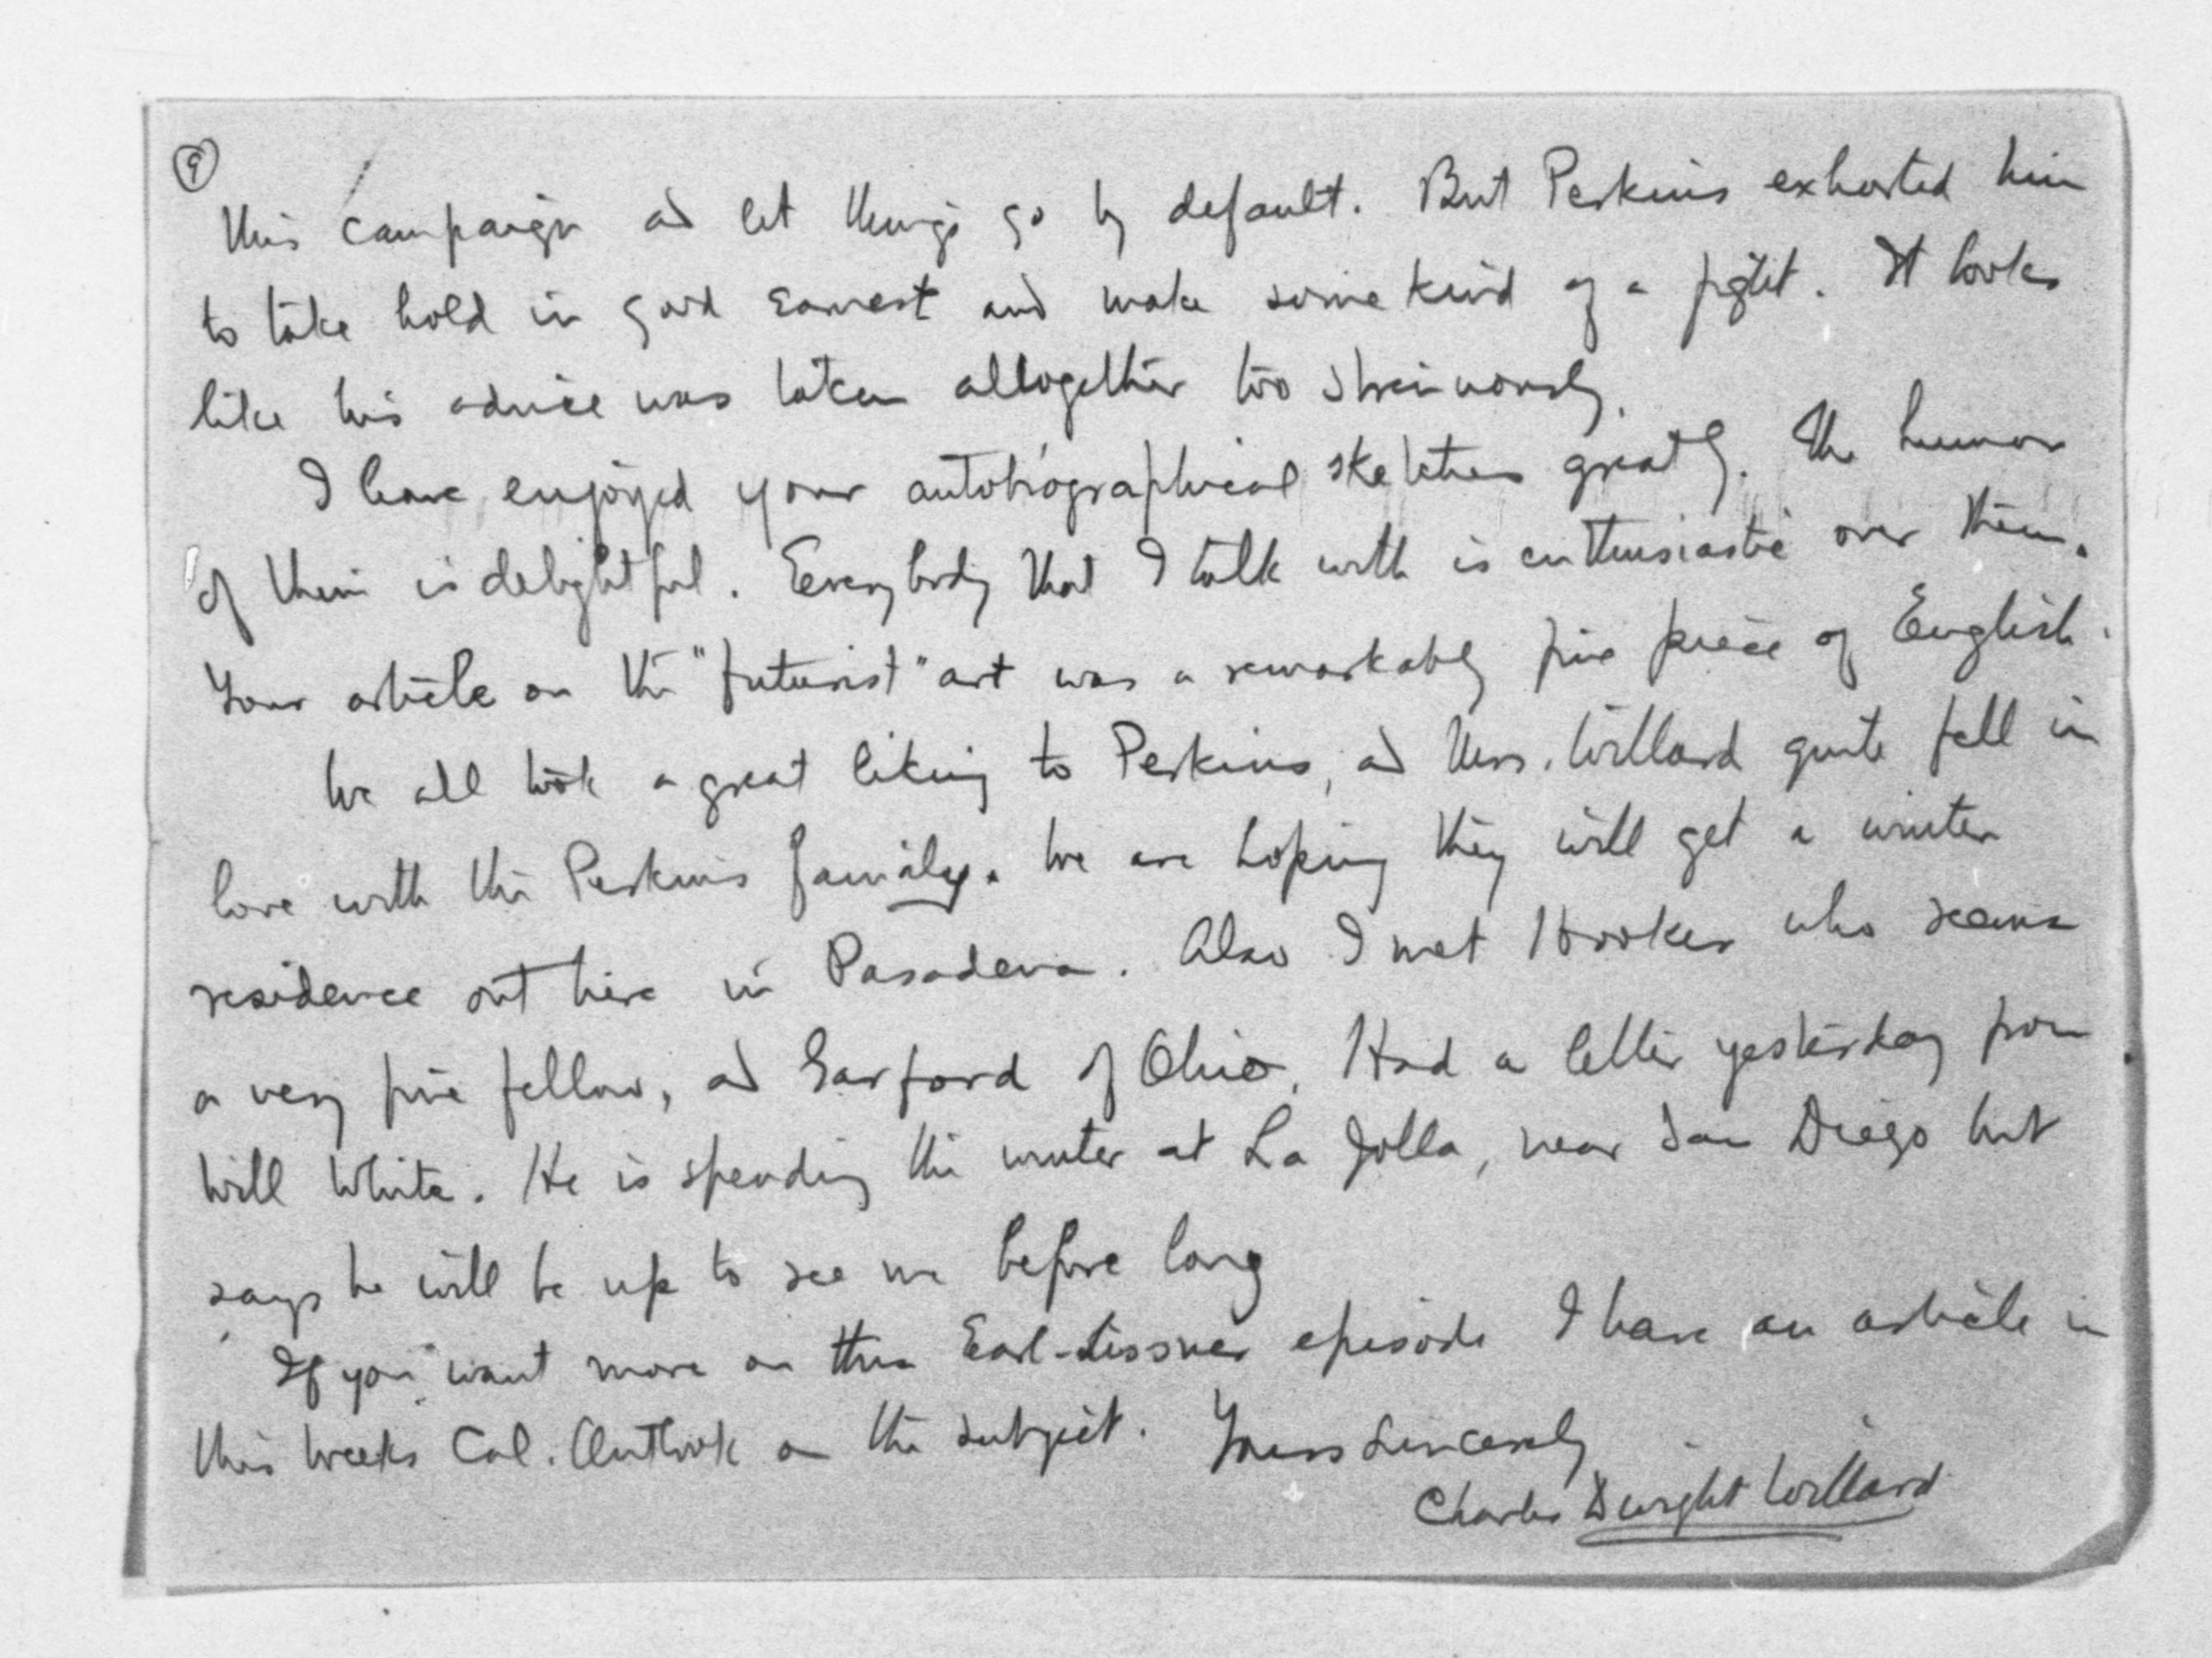 9
this campaign ad let things go by default. But Perkins exhorted him
to take hold in good earnest and make some kind of a fight. It looks
like his advice was taken altogether too strenuously.
I have enjoyed your autobiographical sketches greatly. The humor
of them is delightful. Everybody that I talk with is enthusiastic over them.
Your article on the "futurist" art was a remarkably fine piece of English.
We all took a great liking to Perkins, ad Mrs. Willard quite fell in
love with the Perkins family. We are hoping they will get a winter
residence out here in Pasadena. Also I met Hooker who seems
a very fine fellow, ad Garford of Ohio. Had a letter yesterday from
Will White. He is spending the winter at La Jolla, near San Diego but
says he will be up to see me before long
If you want more on this Earl-Lissner episode I have an article in
this weeks Cal. Outlook on the subject. Yours Sincerely
Charles Dwight Willard